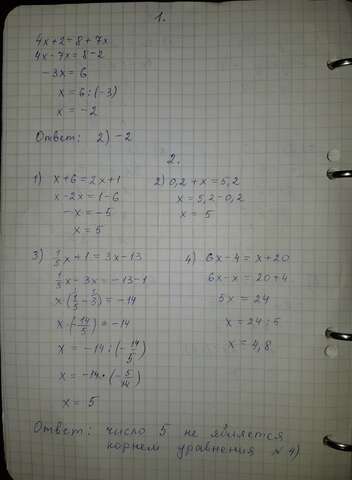 1.
4x+2=8+7x
4x-7x=8-2
-3x=6
x=6:(-3)
x=-2
Ответ: 2) -2
2.
1) x+6=2x+1
x-2x=1-6
-x=-5
x=5
2) 0,2+x=5,2
x=5,2-0,2
x=5
3) 1/5x+1=3x-13
1/5x-3x=-13-1
x·(1/5-3)=-14
x·(-14/5)=-14
x=-14:(-14/5)
x=-14·(-5/14)
x=5
4) 6x-4=x+20
6x-x=20+4
5x=24
x=24:5
x=4,8
Ответ: число 5 не является
корнем уравнения №4)